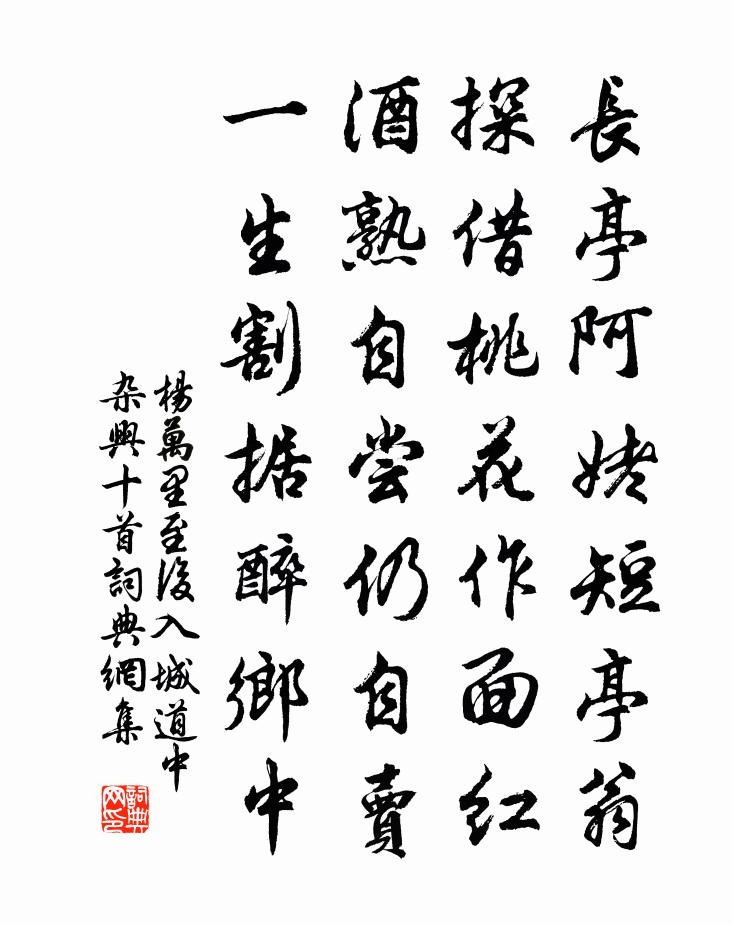 長亭阿姥短亭翁
探借桃花作面紅
酒熟自尝仍自賣
一生割据醉鄉中
楊萬里至後入城道中
杂興十首詞典網集
詞典网印